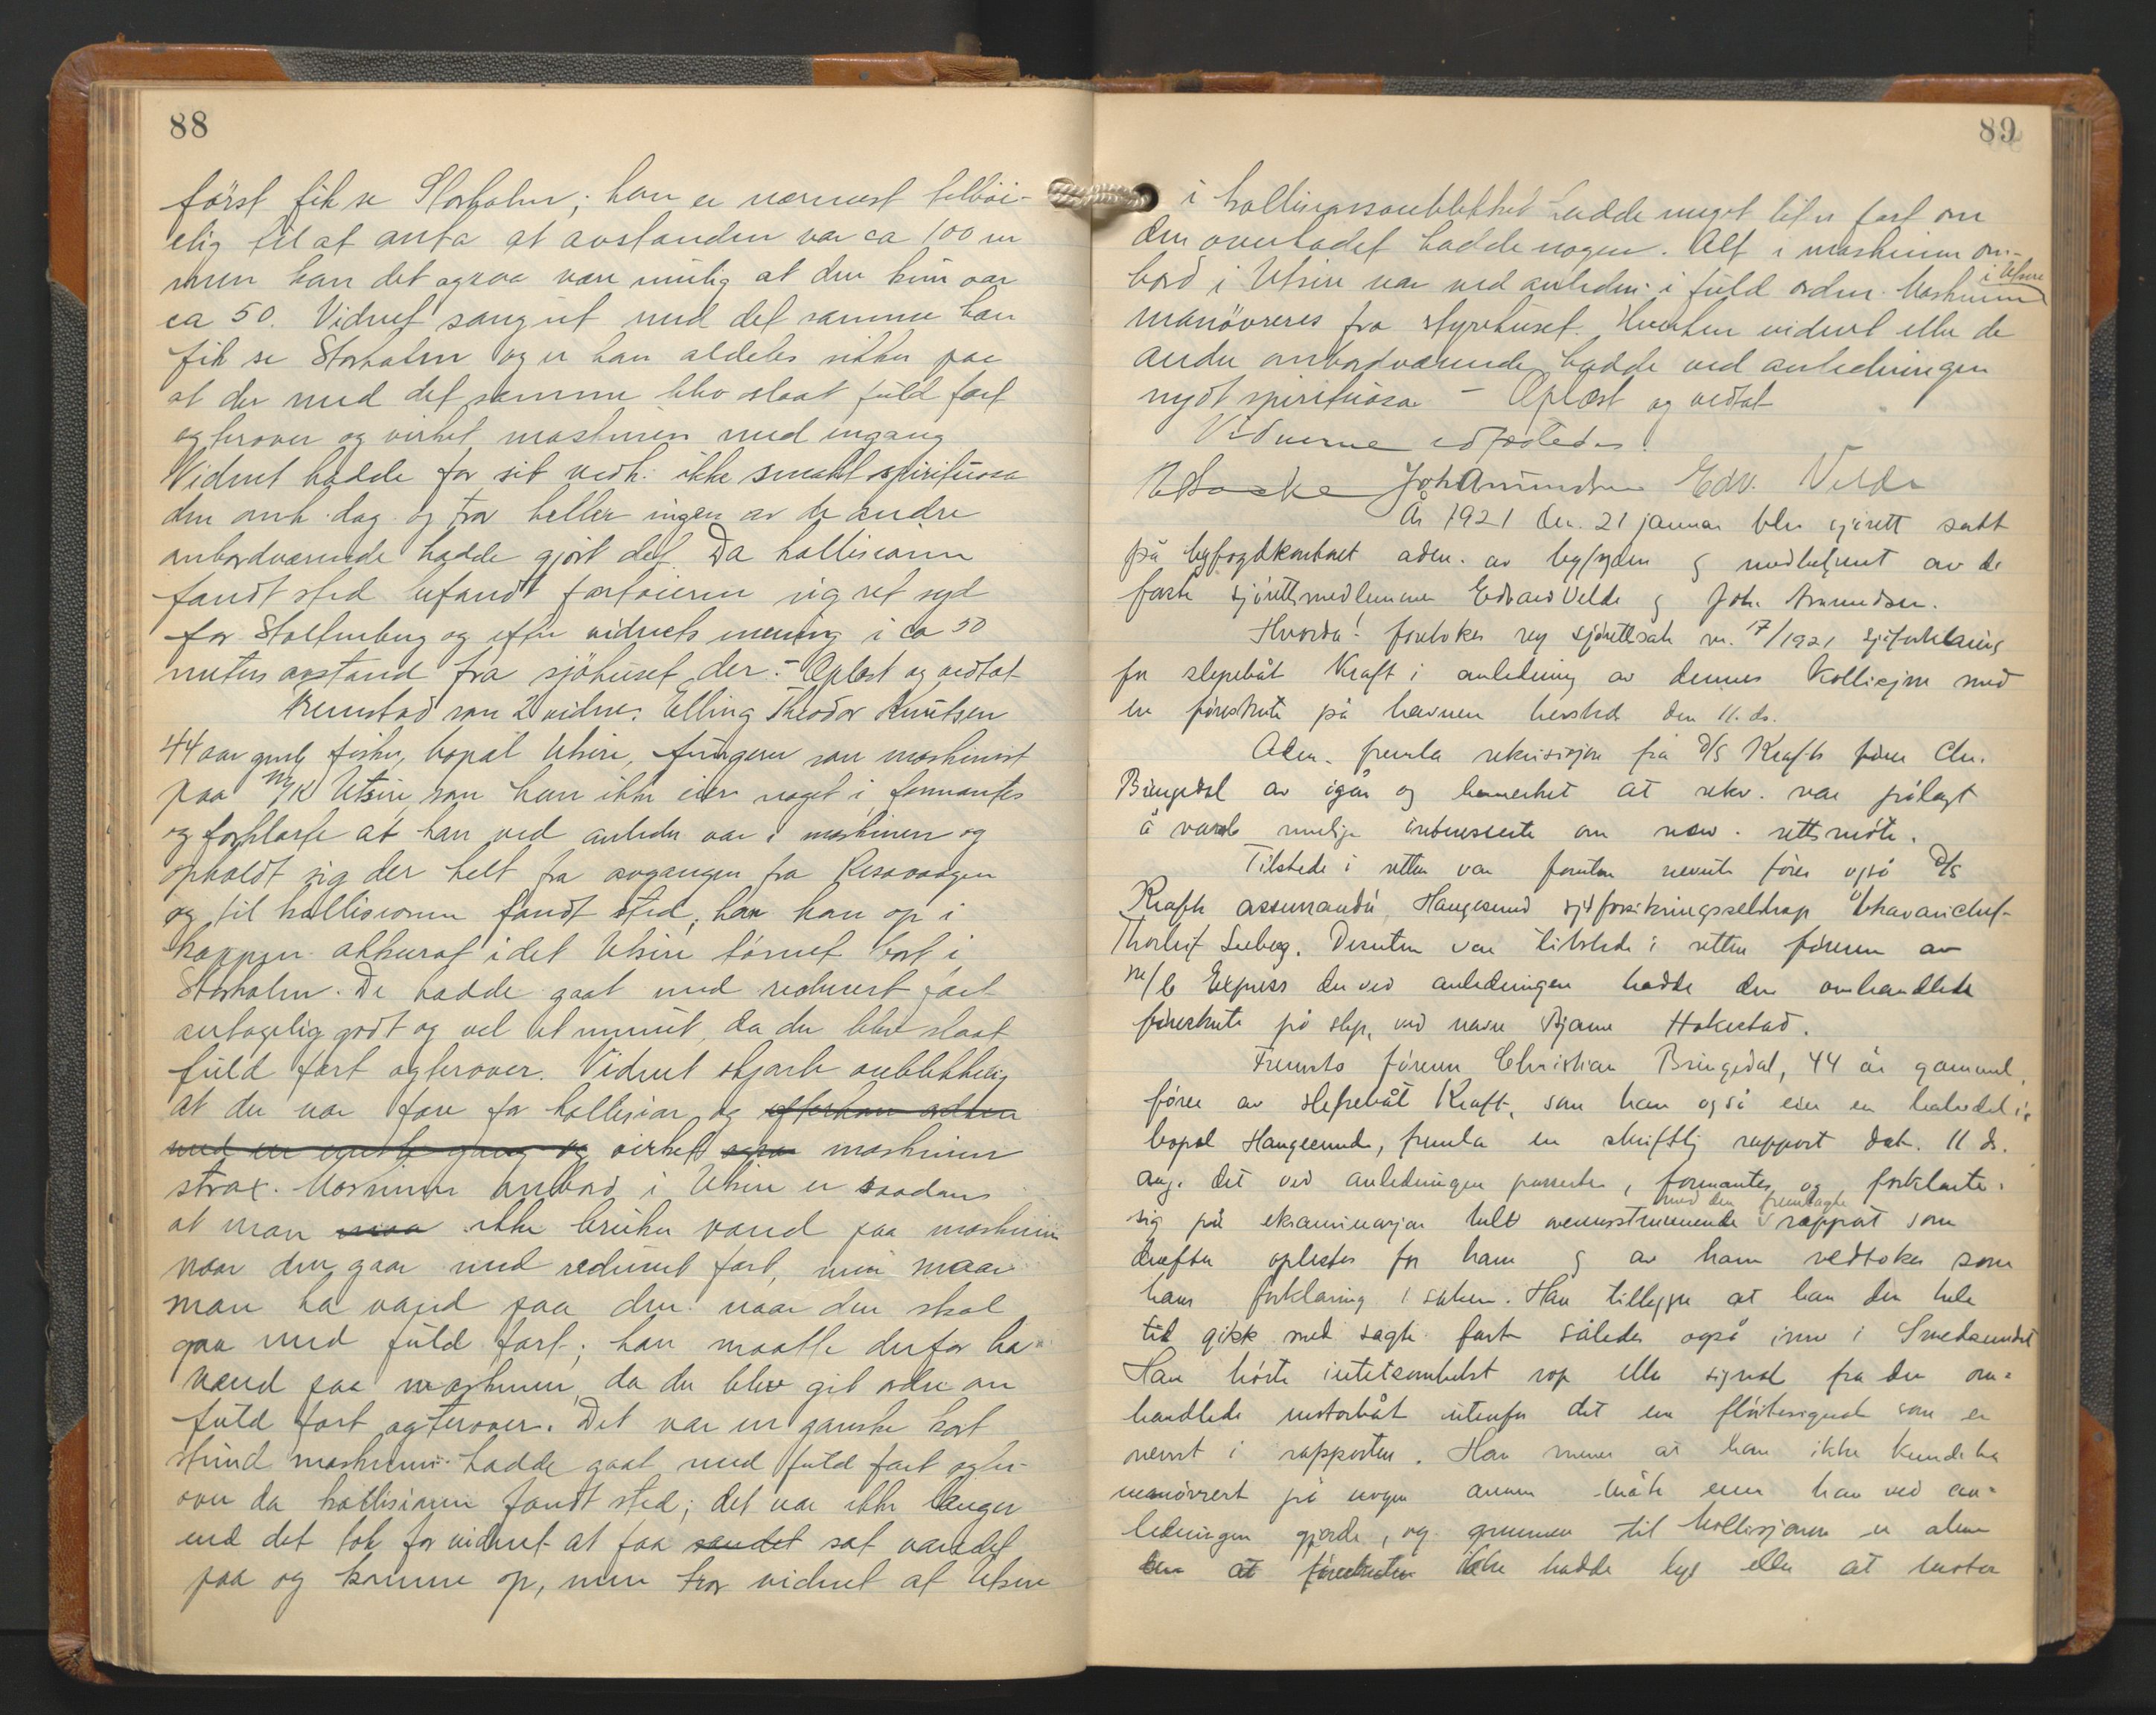 88
först fik se Storholm; han er nærmest tilböi-
elig til at anta at avstanden var ca 100 m
men kan det ogsaa være mulig at den kun var
ca 50. Vidnet sang ut med det samme han
fik se Storholm og er han aldeles sikker paa
at der med det samme blev slaat fuld fart
agterover og virket maskinen med engang
Vidnet hadde for sit vedk. ikke smakt spirituosa
den omh. dag og tror heller ingen av de andre
ombordværende hadde gjort det. Da kollisionen
fandt sted befandt fartöierne sig ret syd
for Stoltenberg og efter vidnets mening i ca 50
meters avstand fra sjöhuset der. - Oplæst og vedtat
Fremstod som 2 vidne: Elling Theodor Knutsen
44 aar gml, fisker, bopæl Utsire, fungerer som maskinist
paa M/K Utsire, som han ikke eier noget i, formantes
og forklarte at han ved anledn. var i maskinen og
opholdt sig der helt fra avgangen fra Kesavaagen
og til kollisionen fandt sted, kom han op i
kappen akkurat idet Utsire törnet bort i
Storholm. De hadde gaat med redusert fart
antagelig godt og vel et minut, da der blev slaat
fuld fart agterover. Vidnet skjönte öieblikkelig
at der var fare for kollision og
virket maskinen
strax. Maskinen ombord i Utsire er saadan
at man ikke bruker vand paa maskinen
naar den gaar med redusert fart, men maa
man ha vand paa den naar den skal
gaa med fuld fart; han maatte derfor ha
vand paa maskinen, da der blev git ordre om
fuld fart agterover. Det var en ganske kort
stund maskinen hadde gaat med fuld fart agter-
over da kollisionen fandt sted; det var ikke længer
end det tok for vidnet at faa sat vandet
paa og komme op, men tror vidnet at Utsire
89
i kollisionsöieblikket hadde meget liten fart om
den overhodet hadde nogen. Alt i maskinen om-
bord i Utsire var ved anledn. i fuld orden. Maskinen i Utsire
manövreres fra styrehuset. Hverken vidnet eller de
andre ombordværende hadde ved anledningen
nydt spirituosa - Oplæst og vedtat
Vidnerne edfæstedes.
Joh Amundsen Edv. Velde
År 1921 den 21 januar blev sjörett satt
på byfogdkontoret adm. av byfogden og medbetjent av de
faste sjörettsmedlemmer Edvard Velde og Joh. Amundsen.
Hvorda! foretokes reg sjörettsak nr. 17/1921 sjöforklaring
for slepebåt Kraft i anledning av dennes kollisjon med
en föreskute på havnen hersteds den 11. ds.
Adm. fremla rekvisisjon fra D/S Krafts förer Chr.
Bringedal av igår og bemerket at rekv. var pålagt
å varsle mulige interesserte om nærv. rettsmöte.
Tilstede i retten var foruten nevnte förer også D/S
Krafts assurandör, Haugesund sjöforsikringsselskap v/havarichef
Thorleif Seeberg. Desuten var tilstede i retten föreren av
M/b Express der ved anledningen hadde den omhandlede
föreskute på slep, ved navn Bjarne Hakestad.
Fremsto föreren Christian Bringedal, 44 år gammel,
förer av slepebåt Kraft, som han også eier en halvdel i,
bopæl Haugesund, fremla en skriftlig rapport dat. 11 ds.
ang. det ved anledningen passerte, formantes og forklarte
sig på eksaminasjon helt overensstemmende med den fremlagte rapport som
derefter oplestes for ham og av ham vedtokes som
hans forklaring i saken. Han tilleggr at han den hele
tid gikk med sagte fart således også inn i Smedasundet
Han hörte intetsomhelst rop eller signal fra den om-
handlede motorbåt utenfor det ene flöitesignal som er
nevnt i rapporten. Han mener at han ikke kunde ha
manövrert på nogen annen måte enn han ved an-
ledningen gjorde, og grunnen til kollisjonen er alene
den at föreskuten ikke hadde lys eller at motor